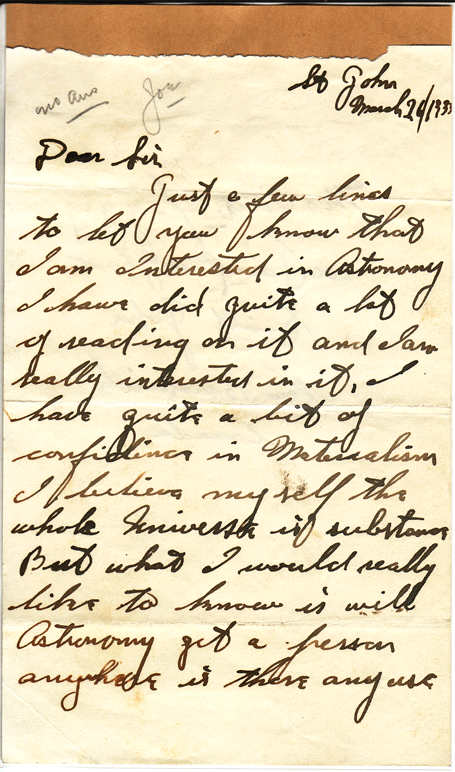 no ans Joe
St John
March 26/1933
Dear Sir
Just a few lines
to let you know that
I am Interested in Astronomy
I have did quite a lot
of reading on it and I am
really interested in it, I
have quite a bit of
confidince in Materialism
I believe my self the
whole Universe is substance
But what I would really
like to know is will
Astronomy get a person
anywhere is there any use